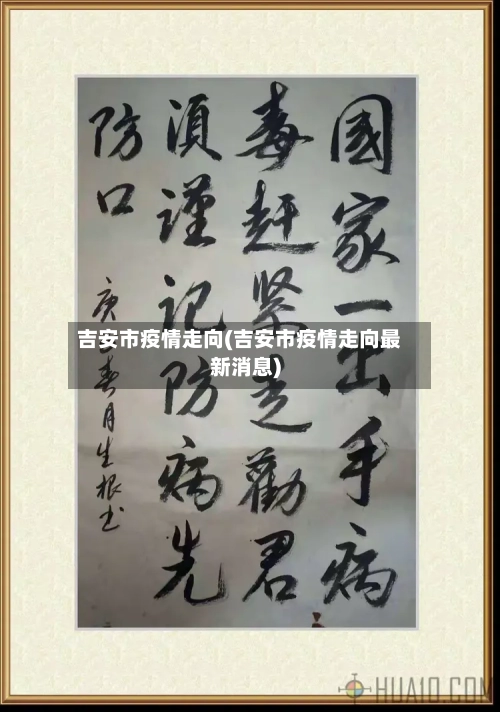 國家一出手病
毒赶紧走勸君
湏謹記防病先
防口
庚春月生根书
吉安市疫情走向(吉安市疫情走向最
新消息)
HUA10.COM